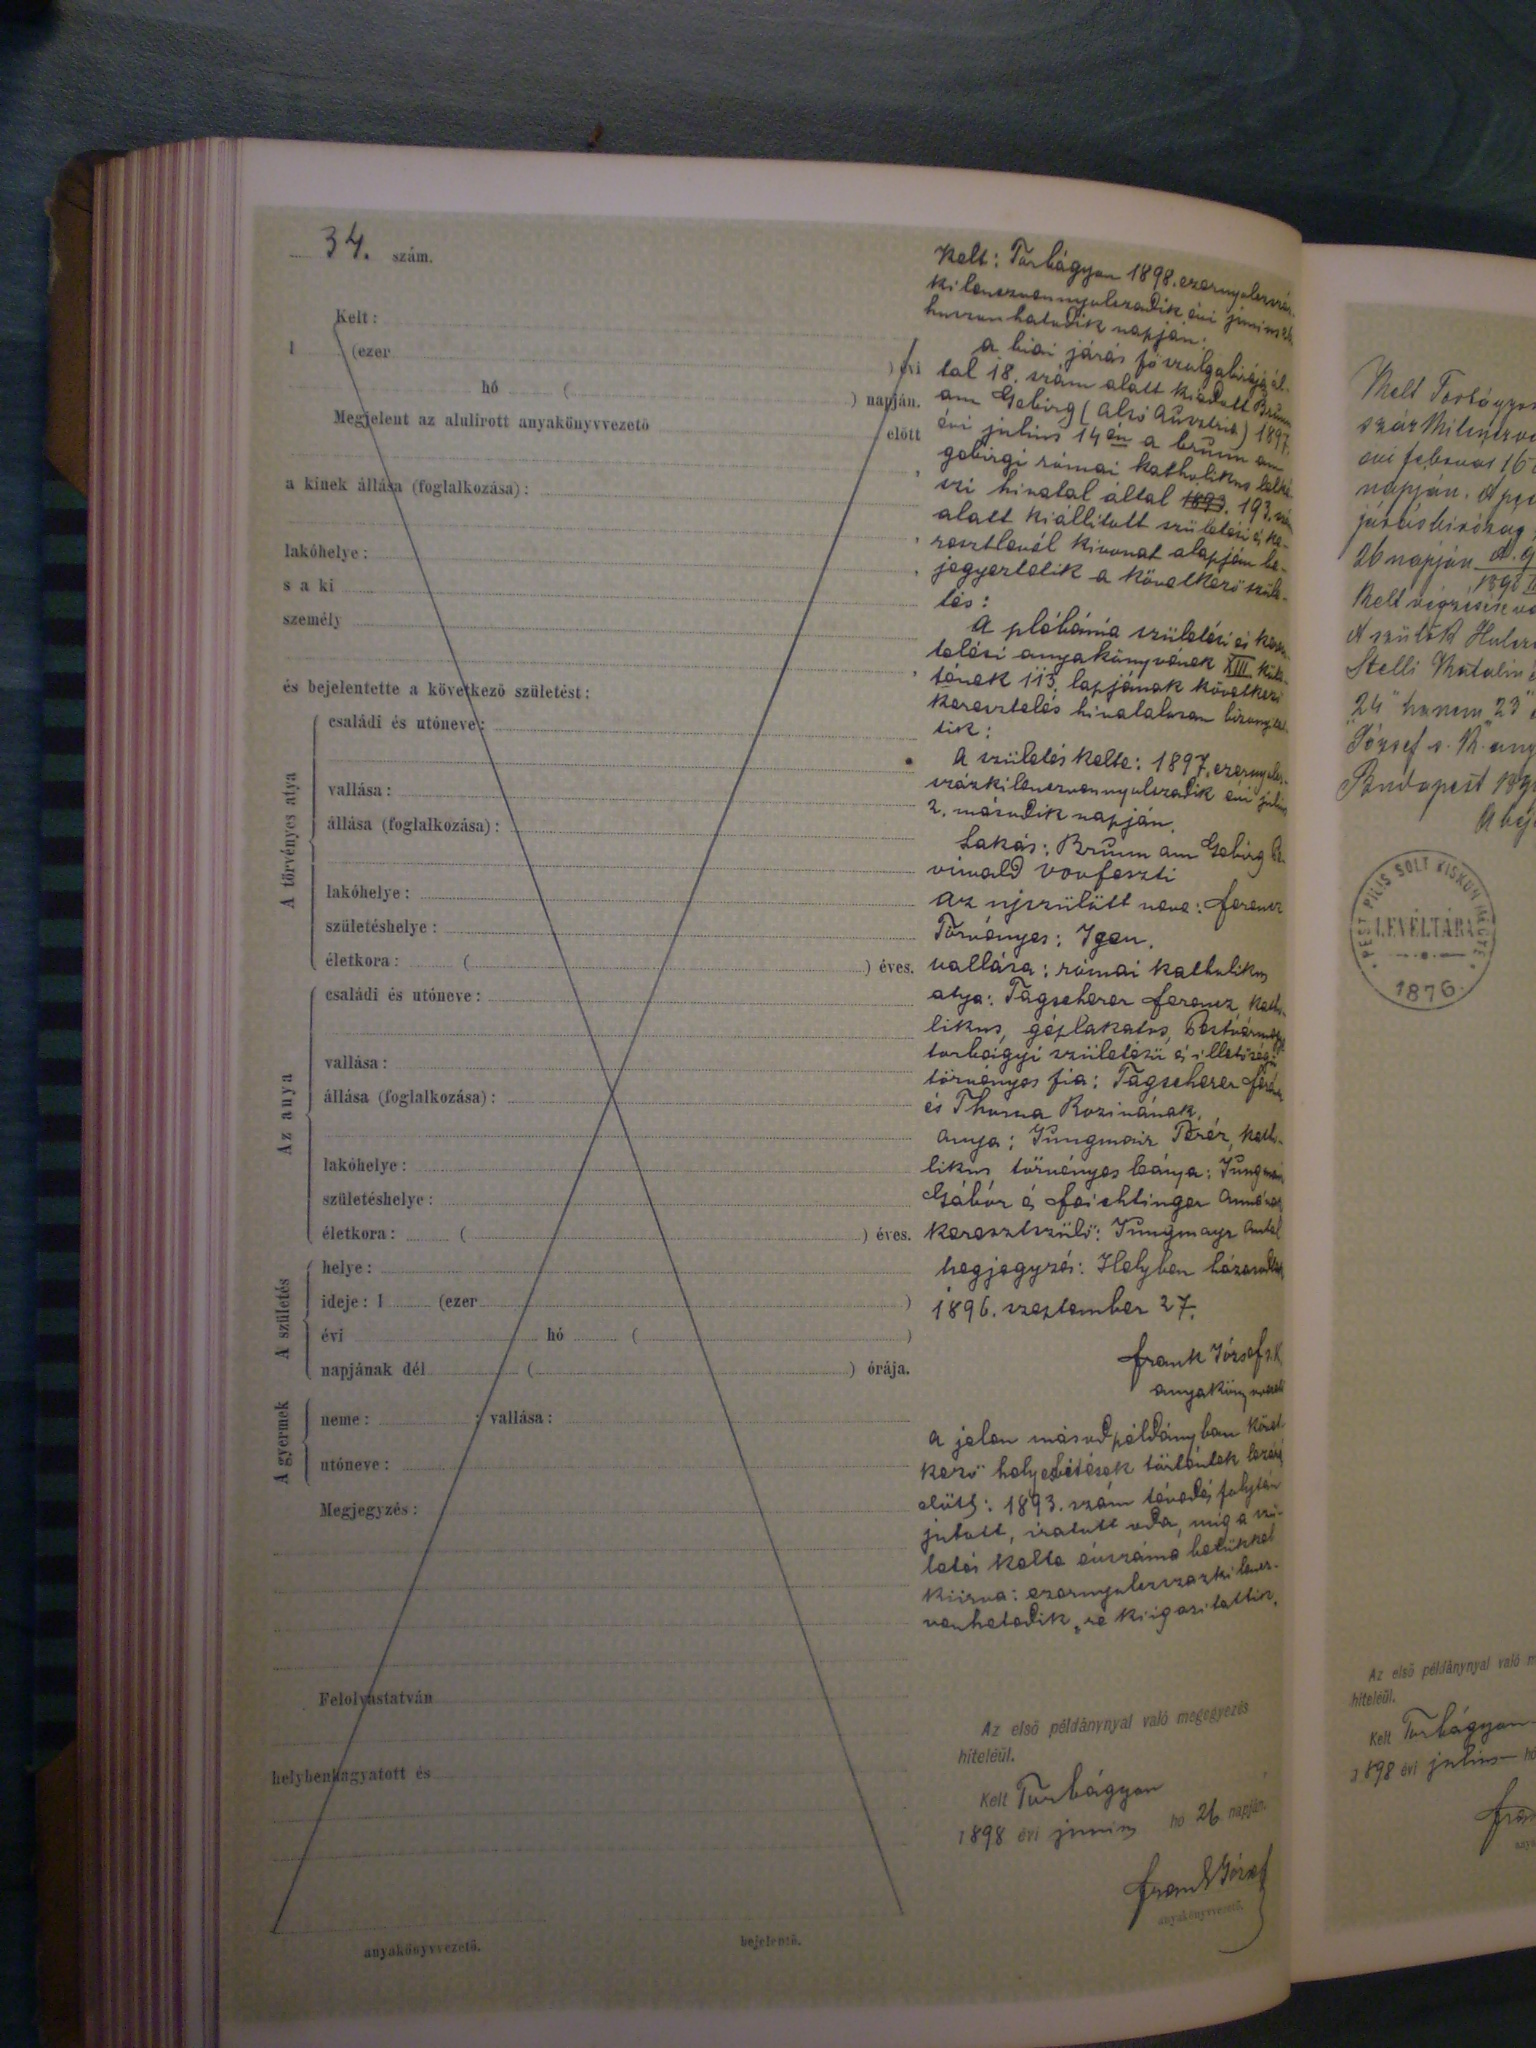 34. szám.
Kelt:
1 (ezer
) évi
hó ( ) napján.
Megjelent az alulírott anyakönyvvezető előtt
a kinek állása (foglalkozása):
lakóhelye:
s a ki
személy
és bejelentette a következő születést:
A törvényes atya
családi és utóneve:
vallása:
állása (foglalkozása):
lakóhelye:
születéshelye:
életkora: ( ) éves.
Az anya
családi és utóneve:
vallása:
állása (foglalkozása):
lakóhelye:
születéshelye:
életkora: ( ) éves.
A születés
helye:
ideje: 1 (ezer )
évi hó ( )
napjának dél ( ) órája.
A gyermek
neme: ; vallása:
utóneve:
Megjegyzés:
Felolvastatván
helybenhagyatott és
anyakönyvvezető.
bejelentő.
Kelt: Torbágyon 1898. ezernyolcszáz-
kilencvennyolczadik évi június
huszonhatodik napján.
A biai járás főszolgabirája ál-
tal 18. szám alatt kiadott Brunn
am Gebirg (Alsó Ausztria) 1897.
évi július 14én a brunn am
gebirgi római katholikus lelké-
szi hivatal által 1893. 193. szám
alatt kiállított születési és ke-
resztlevél kivonat alapján be-
jegyeztetik a következő szüle-
tés:
A plébánia születési és keresz-
telési anyakönyvének XIII köte-
tének 113. lapjának következő
keresztelés hivatalosan bizonyítta-
tik:
A születés kelte: 1897. ezernyolcz-
százkilenczvennyolczadik évi július
2. második napján.
Lakás: Brunn am Gebirg
az ujszülött neve: Ferencz
Törvényes: Igen.
vallása: római katholikus
atya: Tagscherer Ferencz, katho-
likus, géplakatos, Pestvármegye
torbágyi születésü és illetőségü
törvényes fia: Tagscherer Ferencz
és Thoma Rozinának.
anya: Jungmair Teréz, katho-
likus törvényes leánya: Jungmair
Gábór és Feichtinger Annának
keresztszülő: Jungmayr Antal
megjegyzés: Helyben házasodtak
1896. szeptember 27.
Frank József s. k.
anyakönyvvezető
A jelen másodpéldányban követ-
kező helyesbitések történtek lezárás
előtt: 1893. szám tévedés folytán
jutott, iratott oda, mig a szü-
letés kelte évszáma betükkel
kiirva: ezernyolczszázkilencz-
venhetedik „re kiigazittatik.
Az első példánynyal való megegyezés
hiteléül.
Kelt Torbágyon
1898 évi június hó 26 napján.
Frank József
anyakönyvvezető.
Kelt Torbágyon
napján. A
26 napján
A szülők
Stelli Katalin
"24" hanem "23"
József s. k.
Budapest
PEST PILIS SOLT KISKUN MEGYE
LEVÉLTÁRA
1876.
Az első példánynyal való
hiteléül.
Kelt Torbágyon
1898 évi július hó